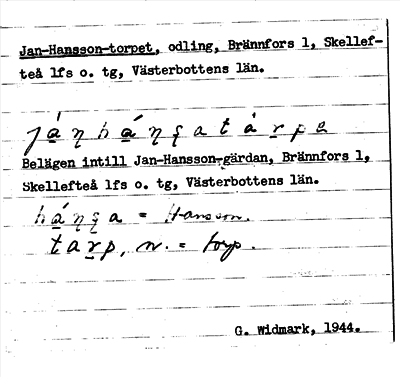 Jan-Hansson-torpet, odling, Brännfors 1, Skellef-
teå lfs o. tg, Västerbottens län.
Belägen intill Jan-Hansson-gärdan, Brännfors 1,
Skellefteå lfs o. tg, Västerbottens län.
= Hansson.
tarp, n. = torp.
G. Widmark, 1944.